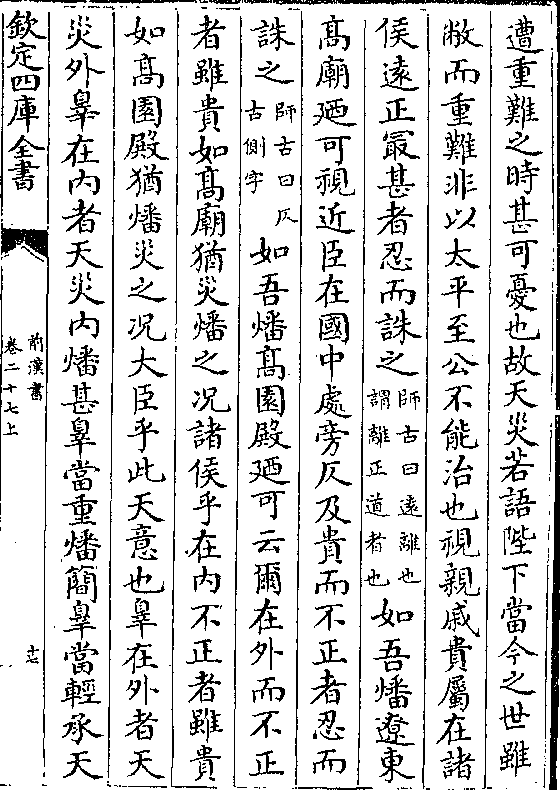 遭重難之時甚可憂也故天災若語陛下當今之世雖
敝而重難非以太平至公不能治也視親戚貴屬在諸
侯遠正冣甚者忍而誅之師古曰遠離也謂離正道者也如吾燔遼東
髙廟廼可視近臣在國中處旁仄及貴而不正者忍而
誅之師古曰仄古側字如吾燔髙園殿廼可云爾在外而不正
者雖貴如髙廟猶災燔之况諸侯乎在内不正者雖貴
如髙園殿猶燔災之况大臣乎此天意也辠在外者天
災外辠在内者天災内燔甚辠當重燔簡辠當輕承天
欽定四庫全書
前漢書
卷二十七上
十七